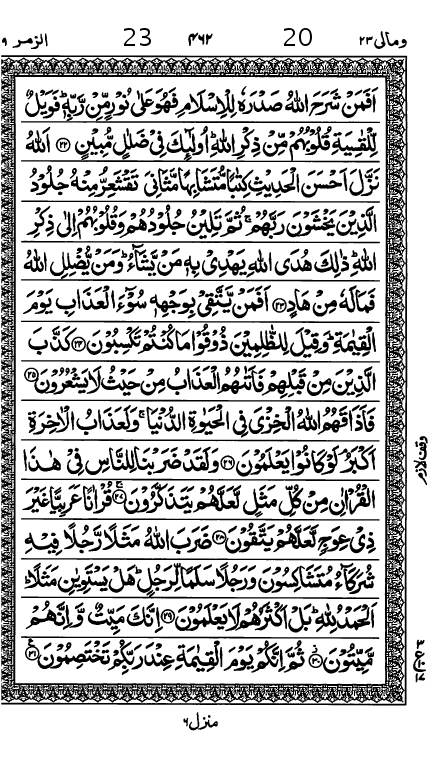 ومالی ۲۳ 20 ۴۶۲ 23 الزمر ۹
اَفَمَنْ شَرَحَ اللّٰهُ صَدْرَهٗ لِلْاِسْلَامِ فَهُوَ عَلٰی نُوْرٍ مِّنْ رَّبِّهٖ ؕ فَوَیْلٌ
لِّلْقٰسِیَةِ قُلُوْبُهُمْ مِّنْ ذِكْرِ اللّٰهِ ؕ اُولٰٓىِٕكَ فِیْ ضَلٰلٍ مُّبِیْنٍ ﴿۲۲﴾ اَللّٰهُ
نَزَّلَ اَحْسَنَ الْحَدِیْثِ كِتٰبًا مُّتَشَابِهًا مَّثَانِیَ ۖۗ تَقْشَعِرُّ مِنْهُ جُلُوْدُ
الَّذِیْنَ یَخْشَوْنَ رَبَّهُمْ ۚ ثُمَّ تَلِیْنُ جُلُوْدُهُمْ وَقُلُوْبُهُمْ اِلٰی ذِكْرِ
اللّٰهِ ؕ ذٰلِكَ هُدَی اللّٰهِ یَهْدِیْ بِهٖ مَنْ یَّشَآءُ ؕ وَمَنْ یُّضْلِلِ اللّٰهُ
فَمَا لَهٗ مِنْ هَادٍ ﴿۲۳﴾ اَفَمَنْ یَّتَّقِیْ بِوَجْهِهٖ سُوْٓءَ الْعَذَابِ یَوْمَ
الْقِیٰمَةِ ؕ وَقِیْلَ لِلظّٰلِمِیْنَ ذُوْقُوْا مَا كُنْتُمْ تَكْسِبُوْنَ ﴿۲۴﴾ كَذَّبَ
الَّذِیْنَ مِنْ قَبْلِهِمْ فَاَتٰىهُمُ الْعَذَابُ مِنْ حَیْثُ لَا یَشْعُرُوْنَ ﴿۲۵﴾
فَاَذَاقَهُمُ اللّٰهُ الْخِزْیَ فِی الْحَیٰوةِ الدُّنْیَا ۚ وَلَعَذَابُ الْاٰخِرَةِ
اَكْبَرُ ۘ لَوْ كَانُوْا یَعْلَمُوْنَ ﴿۲۶﴾ وَلَقَدْ ضَرَبْنَا لِلنَّاسِ فِیْ هٰذَا
الْقُرْاٰنِ مِنْ كُلِّ مَثَلٍ لَّعَلَّهُمْ یَتَذَكَّرُوْنَ ﴿۲۷﴾ قُرْاٰنًا عَرَبِیًّا غَیْرَ
ذِیْ عِوَجٍ لَّعَلَّهُمْ یَتَّقُوْنَ ﴿۲۸﴾ ضَرَبَ اللّٰهُ مَثَلًا رَّجُلًا فِیْهِ
شُرَكَآءُ مُتَشٰكِسُوْنَ وَرَجُلًا سَلَمًا لِّرَجُلٍ ؕ هَلْ یَسْتَوِیٰنِ مَثَلًا ؕ
اَلْحَمْدُ لِلّٰهِ ۚ بَلْ اَكْثَرُهُمْ لَا یَعْلَمُوْنَ ﴿۲۹﴾ اِنَّكَ مَیِّتٌ وَّاِنَّهُمْ
مَّیِّتُوْنَ ﴿۳۰﴾ ثُمَّ اِنَّكُمْ یَوْمَ الْقِیٰمَةِ عِنْدَ رَبِّكُمْ تَخْتَصِمُوْنَ ﴿۳۱﴾
وقف لازم
منزل ۶